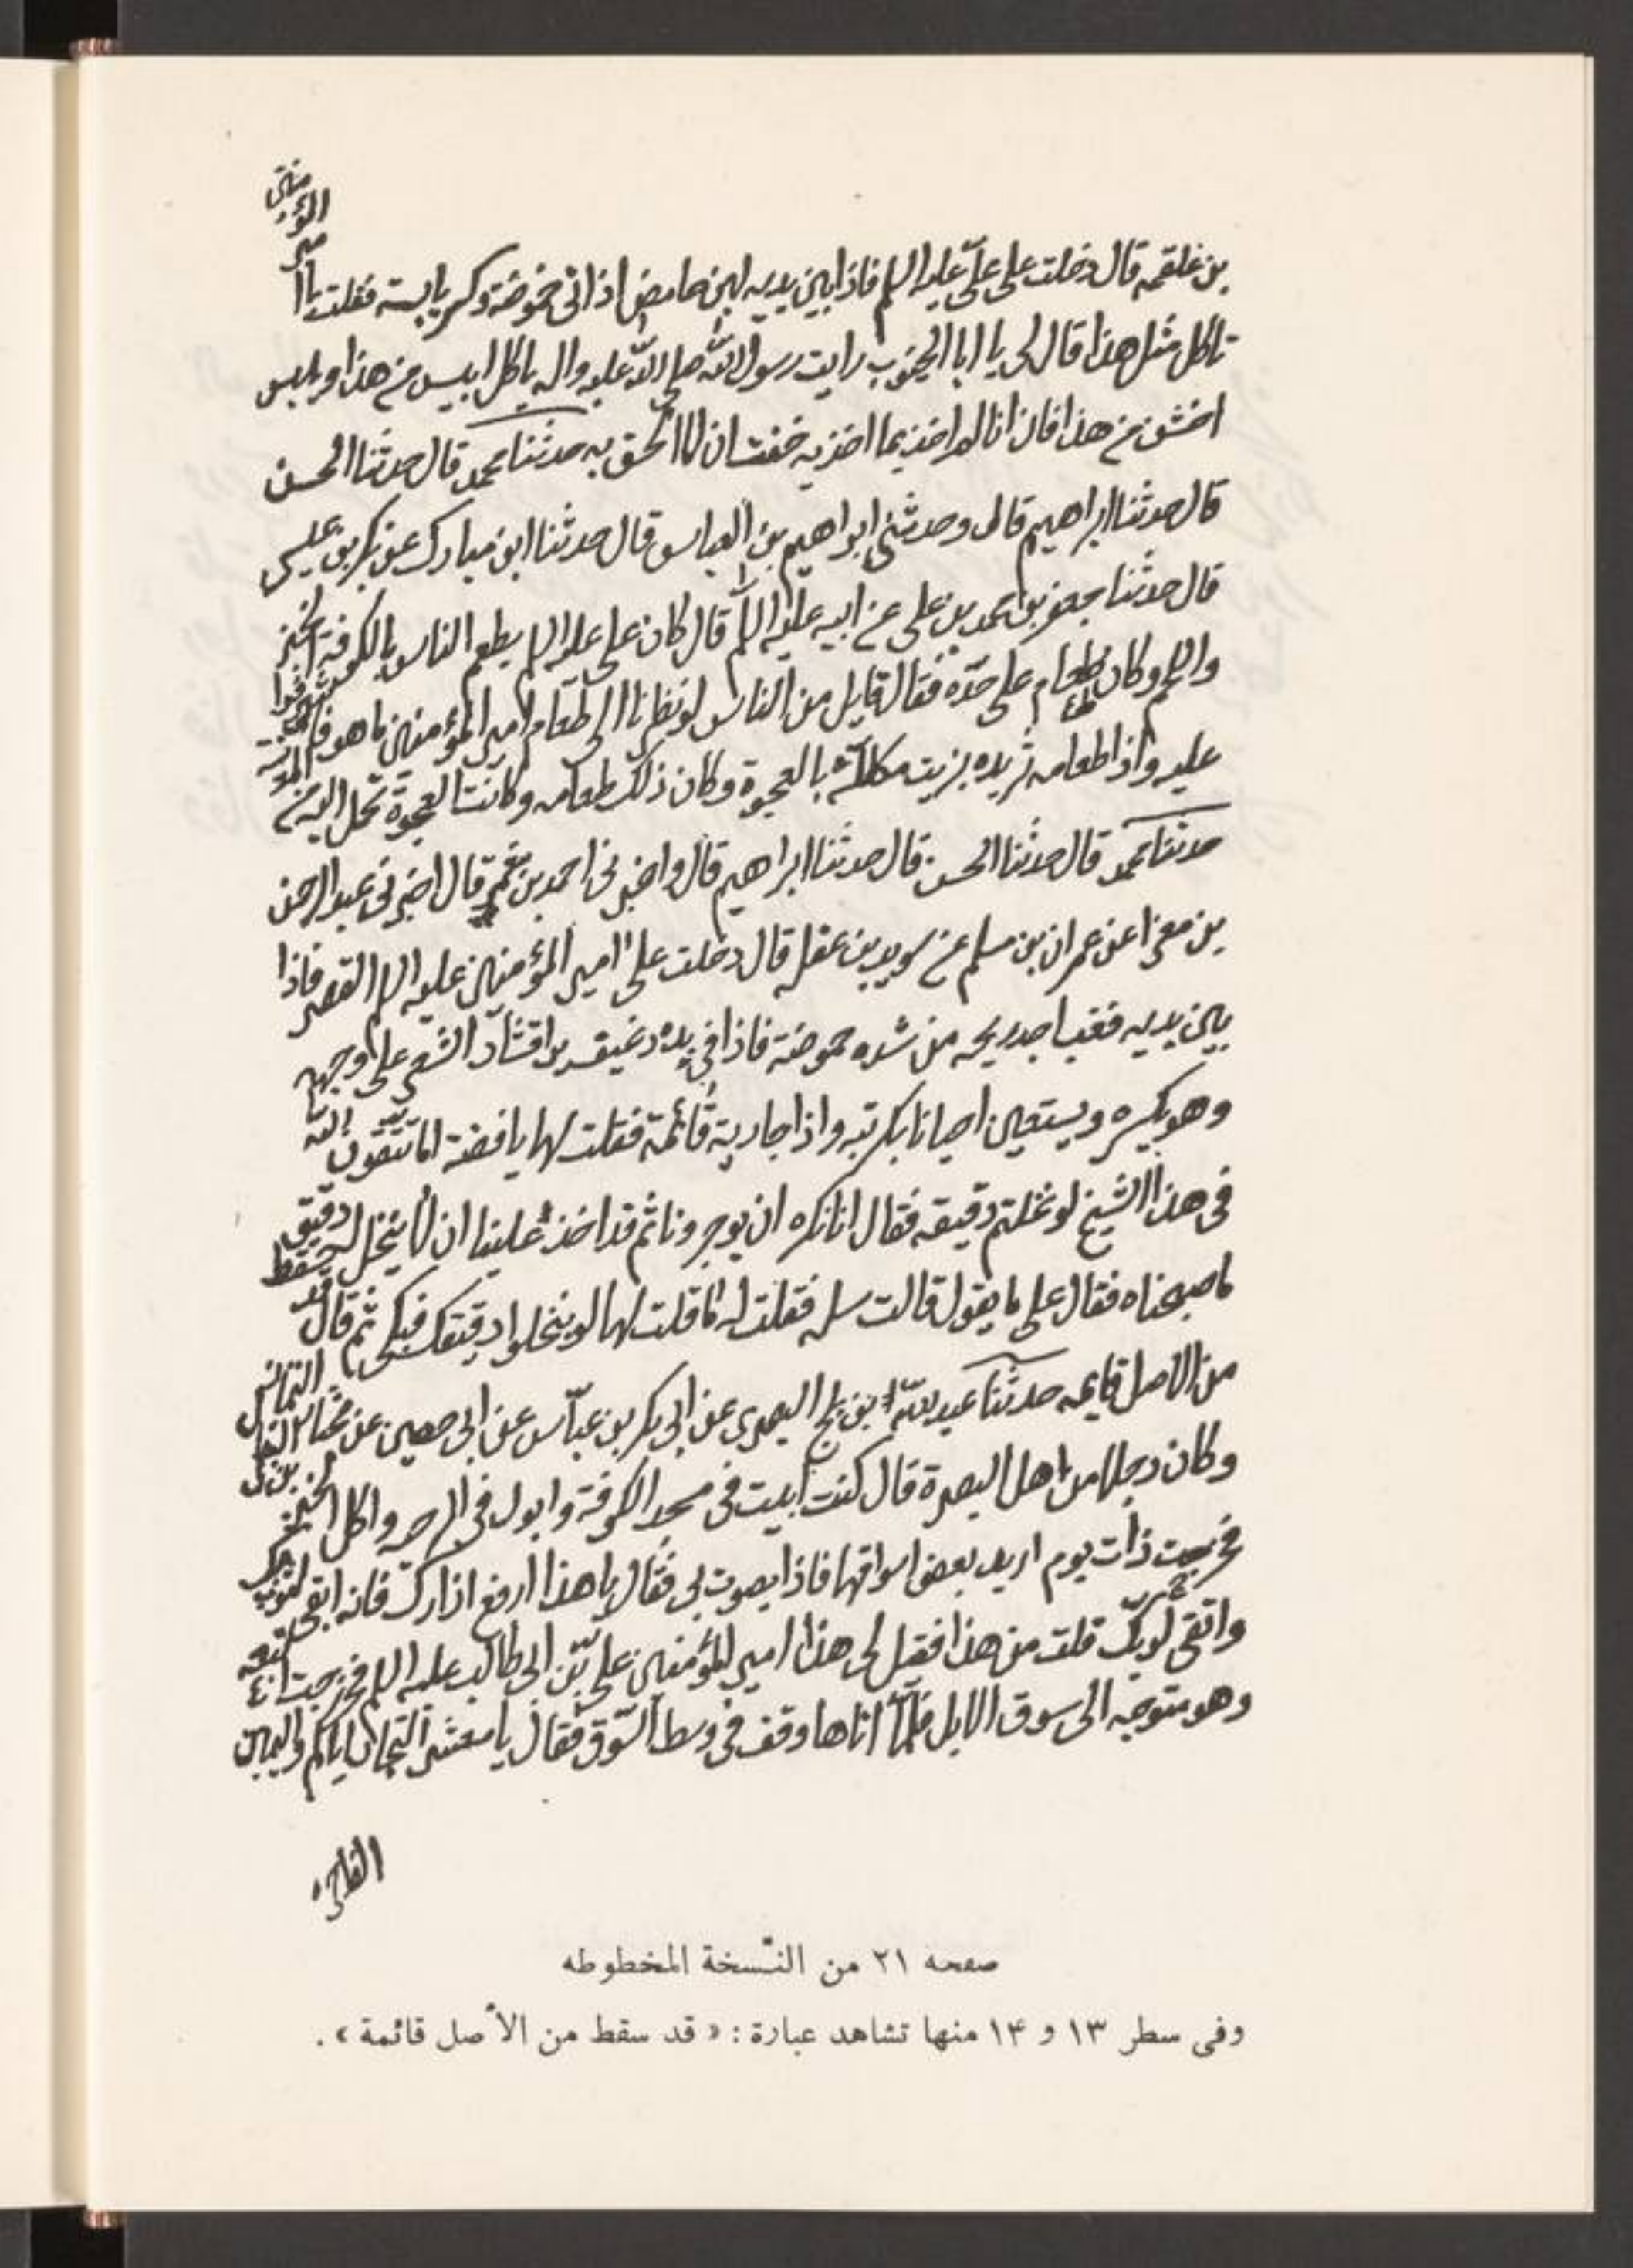 بن علقمه قال دخلت على علىّ عليه السلم فاذا بين يديه لبن حامض اذانى حموضته وكسر يابسة فقلت يا امير المؤمنين
تاكل مثل هذا قال لى يا ابا الجنوب رايت رسول الله صلى الله عليه واله ياكل ايبس من هذا ويلبس
اخشن من هذا فان انا لم اخذ بما اخذ به خفت ان لا الحق به حدثنا محمد قال حدثنا الحسن
قال حدثنا ابراهيم قال وحدثنى ابراهيم بن العباس قال حدثنا ابن مبارك عن بكر بن عيسى
قال حدثنا جعفر بن محمد بن على عن ابيه عليه السلم قال كان على عليه السلم يطعم الناس بالكوفة الخبز
واللحم وكان له طعام على حدّه فقال قايل من الناس لو نظرنا الى طعام امير المؤمنين ما هو فاشرفوا
عليه واذا طعامه ثريده بزيت مكللّة بالعجوة وكان ذلك طعامه وكانت العجوة تحمل اليه من المدينة
حدثنا محمد قال حدثنا الحسن قال حدثنا ابراهيم قال واخبرنى احمد بن قال اخبرنى عبد الرحمن
بن مغرا عن عمران بن مسلم عن سويد بن غفله قال دخلت على امير المؤمنين عليه السلم القصر فاذا
بين يديه قعب اجد ريحه من شده حموضته فاذا فى يده رغيف يرا قشار الشعير على وجهه
وهو يكسره ويستعين احيانا بركبته واذا جارية قائمة فقلت لها يا فضة اما تتقون الله
فى هذا الشيخ لو نخلتم دقيقه فقال انا نكره ان يوجر وناثم قد اخذ علينا ان لا ينخل له دقيق
ما صحبناه فقال على ما يقول قالت سله فقلت له ما قلت لها لو ينخلوا دقيقك فبكى ثم قال قد سقط
من الاصل قايمه حدثنا عبد الله بن بلج البصرى عن ابى بكر بن عيّاش عن ابى حصين عن مختار التمار
وكان رجلا من اهل البصرة قال كنت ابيت فى مسجد الكوفة وابول فى الرحبه واكل الخبز
فخرجت ذات يوم اريد بعض اسواقها فاذا بصوت بى فقال يا هذا ارفع ازارك فانه ابقى لثوبك
واتقى لربك قلت من هذا فقيل لى هذا امير المؤمنين على بن ابى طالب عليه السلم فخرجت اتبعه
وهو متوجه الى سوق الابل فلمّا اتاها وقف فى وسط السّوق فقال يا معشر التجار اياكم واليمين
الفاجره
صفحه ٢١ من النّسخة المخطوطه
وفى سطر ١٣ و ١۴ منها تشاهد عبارة : « قد سقط من الأصل قائمة » .